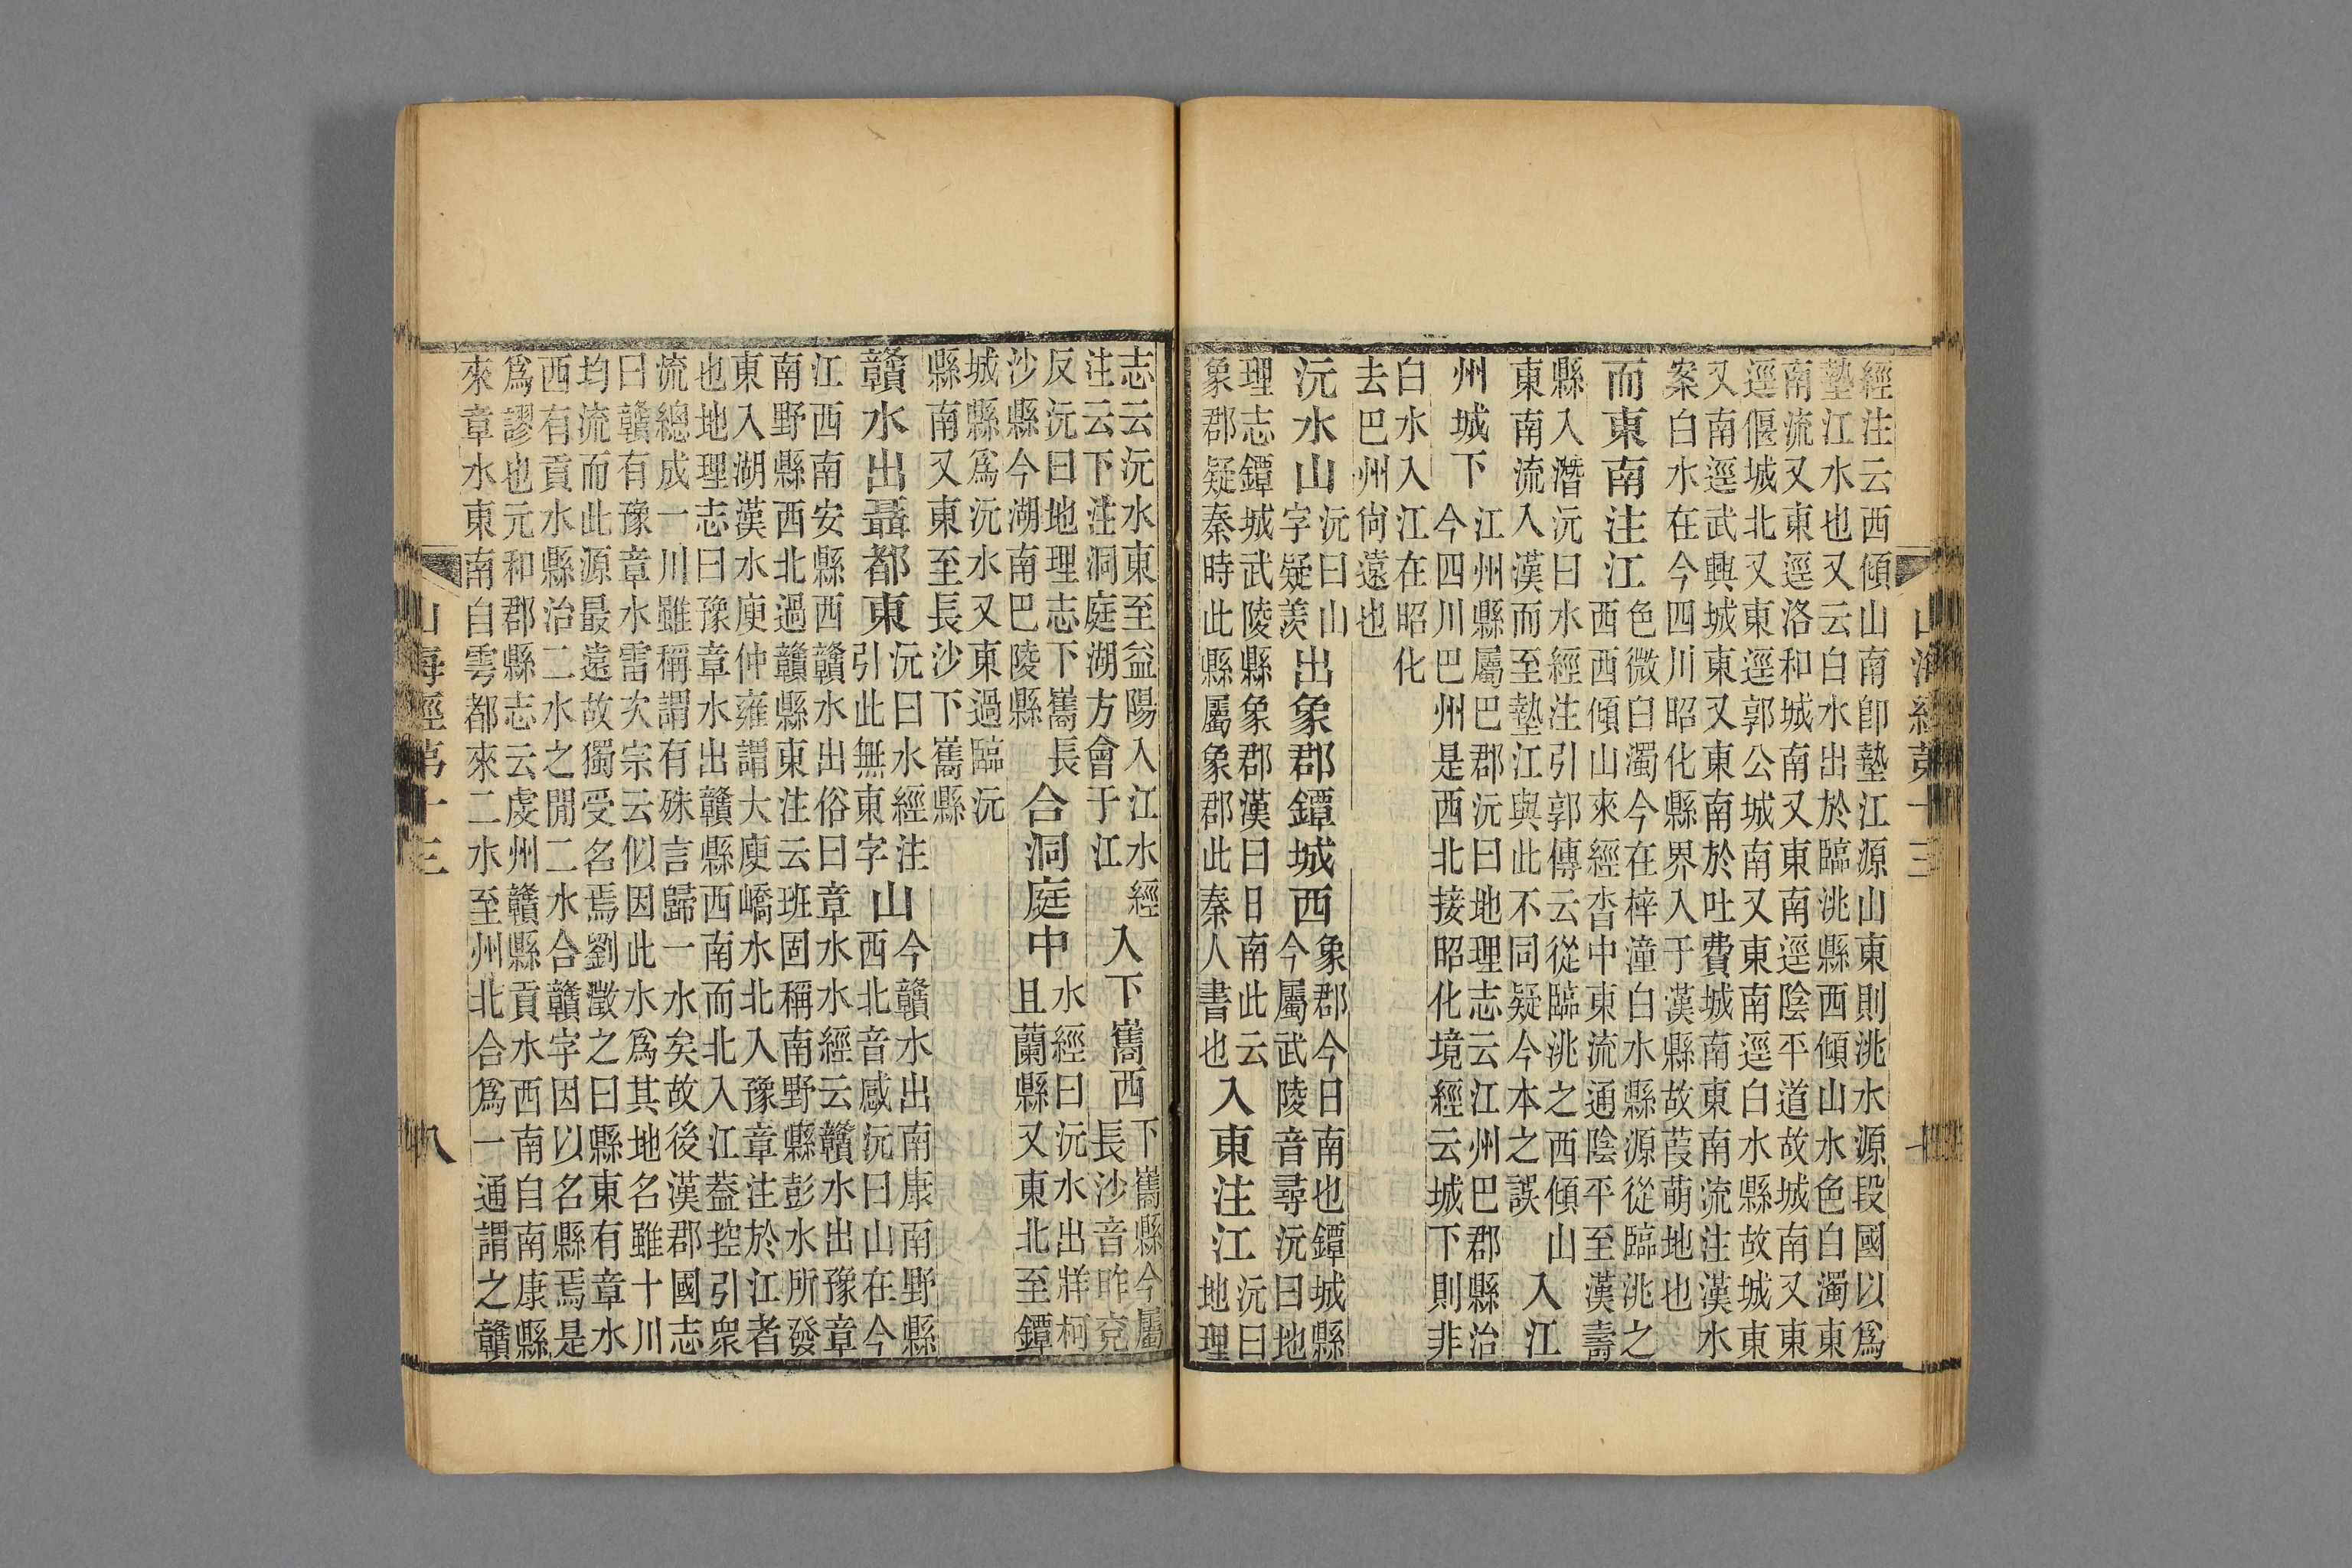 山海經第十三
七
經注云西傾山南卽墊江源山東則洮水源段國以爲
墊江水也又云白水出於臨洮縣西傾山水色白濁東
南流又東逕洛和城南又東南逕陰平道故城南又東
逕偃城北又東逕郭公城南又東南逕白水縣故城東
又南逕武興城東又東南於吐費城南東南流注漢水
案白水在今四川昭化縣界入于漢縣故葭萌地也
而東南注江
色微白濁今在梓潼白水縣源從臨洮之
西西傾山來經沓中東流通陰平至漢壽
縣入潛沅曰水經注引郭傳云從臨洮之西傾山
東南流入漢而至墊江與此不同疑今本之誤
入江
州城下
江州縣屬巴郡沅曰地理志云江州巴郡縣治
今四川巴州是西北接昭化境經云城下則非
白水入江在昭化
去巴州尙遠也
沅水山
沅曰山
字疑羨
出象郡鐔城西
象郡今日南也鐔城縣
今屬武陵音尋沅曰地
理志鐔城武陵縣象郡漢曰日南此云
象郡疑秦時此縣屬象郡此秦人書也
入東注江
沅曰
地理
志云沅水東至益陽入江水經
注云下注洞庭湖方會于江
入下雋西
下雋縣今屬
長沙音昨兗
反沅曰地理志下雋長
沙縣今湖南巴陵縣
合洞庭中
水經曰沅水出牂柯
且蘭縣又東北至鐔
城縣爲沅水又東過臨沅
縣南又東至長沙下雋縣
贛水出聶都東
沅曰水經注
引此無東字
山
今贛水出南康南野縣
西北音感沅曰山在今
江西南安縣西贛水出俗曰章水水經云贛水出豫章
南野縣西北過贛縣東注云班固稱南野縣彭水所發
東入湖漢水庾仲雍謂大庾嶠水北入豫章注於江者
也地理志曰豫章水出贛縣西南而北入江蓋控引衆
流總成一川雖稱謂有殊言歸一水矣故後漢郡國志
曰贛有豫章水雷次宗云似因此水爲其地名雖十川
均流而此源最遠故獨受名焉劉澂之曰縣東有章水
西有貢水縣治二水之閒二水合贛字因以名縣焉是
爲謬也元和郡縣志云虔州贛縣貢水西南自南康縣
來章水東南自雩都來二水至州北合爲一通謂之贛
山海經第十三
八